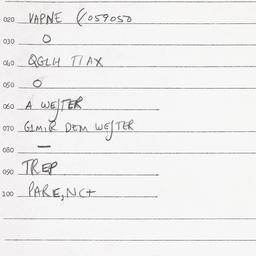 020 VAPNE (/059050
030 O
040 QGLH TIAX
050 O
060 A WESTER
070 GLMIR DEM WESTER
080 —
090 TREP
100 PARE, NC+